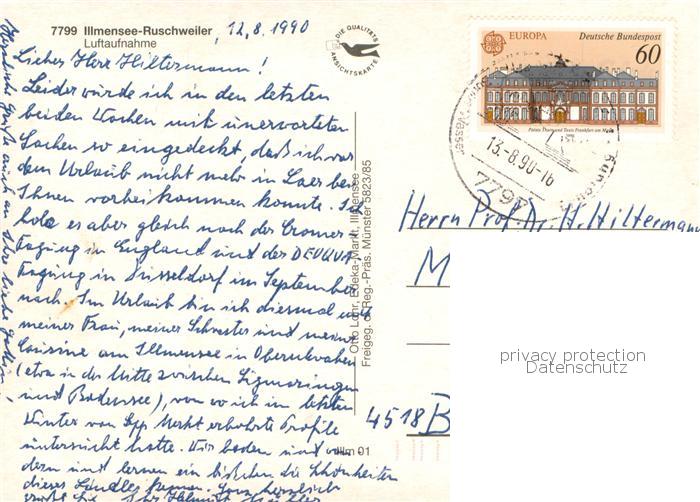 7799 Illmensee-Ruschweiler
Luftaufnahme
, 12.8.1990
DIE QUALITÄTS
ANSICHTSKARTE
Lieber Herr Hiltermann!
Leider wurde ich in den letzten
beiden Wochen mit unerwarteten
Sachen so eingedeckt, daß ich vor
dem Urlaub nicht mehr in Laer bei
Ihnen vorbeikommen konnte. Ich
hole es aber gleich nach der Cromer-
Tagung in England und der DEUQUA
Tagung in Düsseldorf im September
nach. Im Urlaub bin ich diesmal mit
meiner Frau, meiner Schwester und meiner
Cousine am Illmensee in Oberschwaben
(etwa in der Mitte zwischen Sigmaringen
und Bodensee), von wo ich im letzten
Winter von erbohrte Profile
untersucht hatte. Wir baden und
dern und lernen ein bißchen die Schönheiten
dieses Ländles kennen. Ganz herzlich
grüßt Sie Ihr Helmut
Herzliche Grüße auch an Ihre liebe
Otto Lohr, Edeka-Markt, Illmensee
Freigeg. d. Reg.-Präs. Münster 5823/85
Illm 01
EUROPA Deutsche Bundespost
60
Palais Thurn und Taxis Frankfurt am Main
13.-8.90-16
7799
Herrn Prof. Dr. H. Hiltermann
M
4518 B
privacy protection
Datenschutz